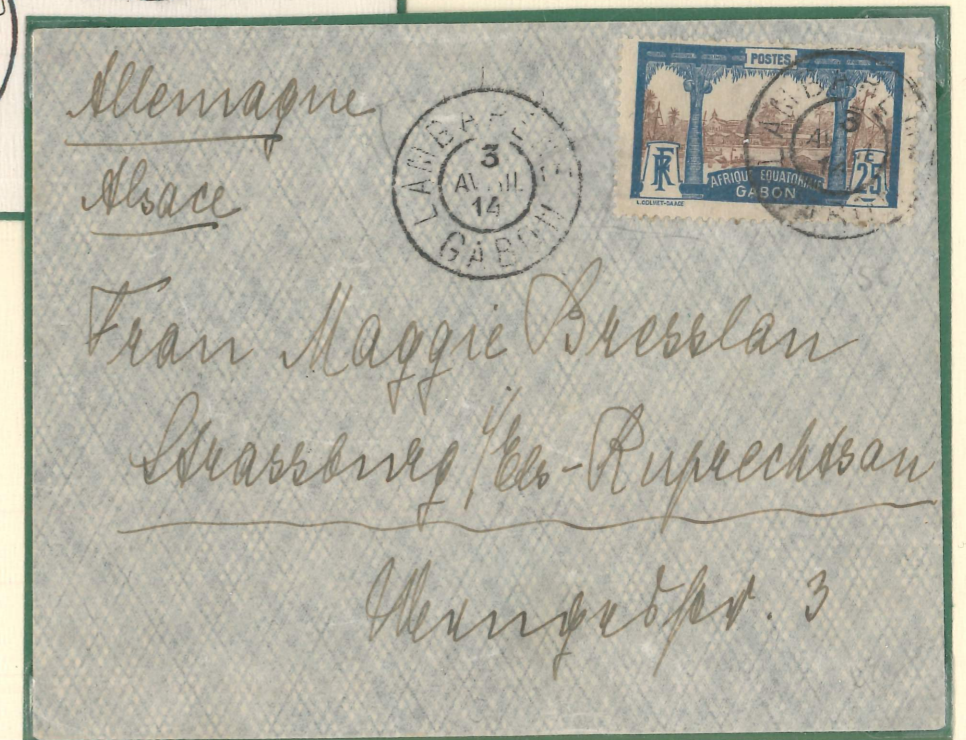 Allemagne
Alsace
LAMBARÉNÉ
3
AVRIL
14
GABON
POSTES
RF
AFRIQUE EQUATORIALE
GABON
25
L. COLMET-DAAGE
Frau Maggie Bresslau
Strassburg i/Els-Ruprechtsau
3